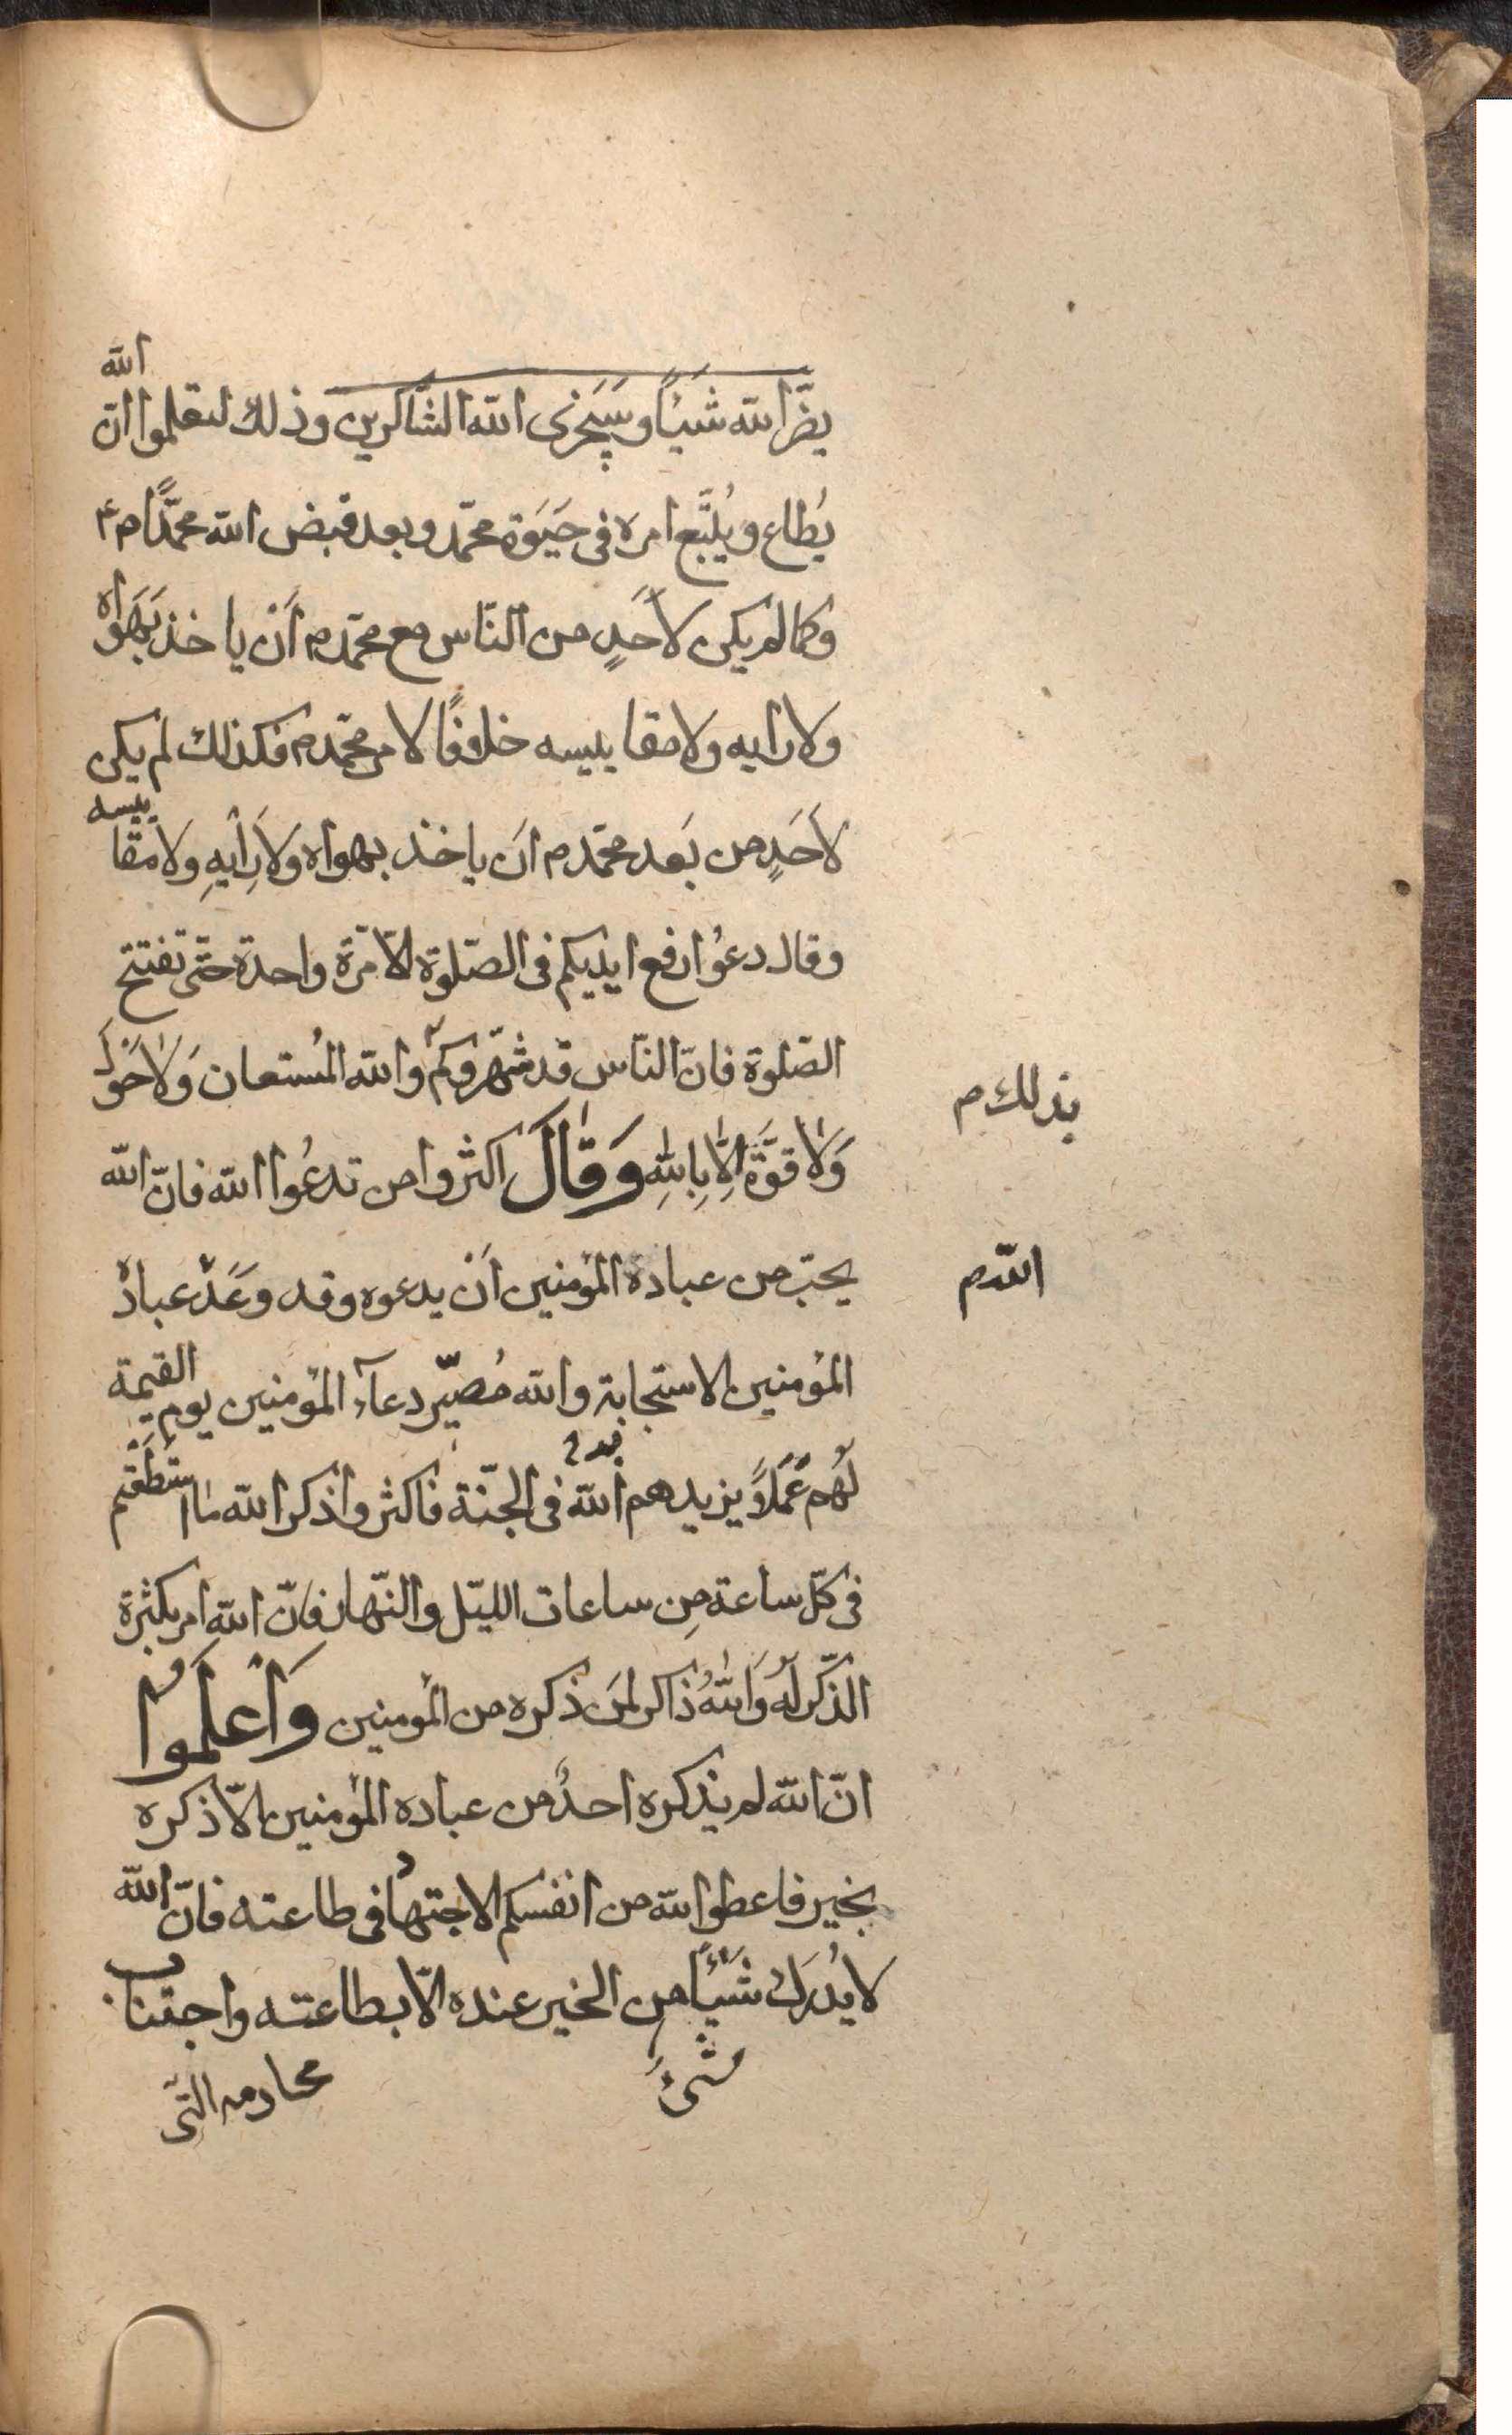 يضرّ الله شَيْئًا وسَيَجزى الله الشّاكرين وذلك لتعلموا انّ الله
يُطاع ويُتَّبع امره فى حَيٰوة محمّد وبعد قبض الله محمّدًا ص ع
وكما لم يكن لأَحَدٍ من النّاس مع محمّد ص أَنْ ياخذ بِهَواه
ولا رايه ولا مقاييسه خلافًا لامر محمّد ص فكذلك لم يكن
لأَحَدٍ من بَعد محمّد ص انَ ياخذ بهواه وَلَا رَأْيِهِ ولا مَقاييسه
وقال دعُوا رفع ايديكم فى الصّلوة الّا مَرّة واحدة حتّى تفتتح
الصّلوة فانّ النّاس قد شهّروكم والله المُستعان وَلا حَوْلَ
بذلك ص
وَلا قوَّةَ اِلّا بِاللهِ وَقالَ اكثروا من تدعُوا الله فانّ الله
يحبّ من عباده المؤمنين أَنْ يدعوه وقد وعَدَ عباده
الله ص
المؤمنين الاستجابة والله مُصيّر دعآء المؤمنين يوم القيمة
لَهُم عَمَلًا يزيدهم الله فى الجنّة فاكثروا ذكر الله ما استطَعْتم
فى كلّ ساعة مِن ساعات الليّل والنّهار فانّ الله امر بكثرة
الذّكر لَهُ وَاللهُ ذاكر لمَن ذكره من المؤمنين وَاعْلَمُوا
انّ الله لم يذكره احدٌ من عباده المؤمنين الّا ذكره
بخير فاعطوا الله من انفسكم الاجتهاد فى طاعته فانّ الله
لا يُدرَك شَيْئًا من الخير عنده الّا بطاعته واجتناب
شىءٌ
محارمه التى